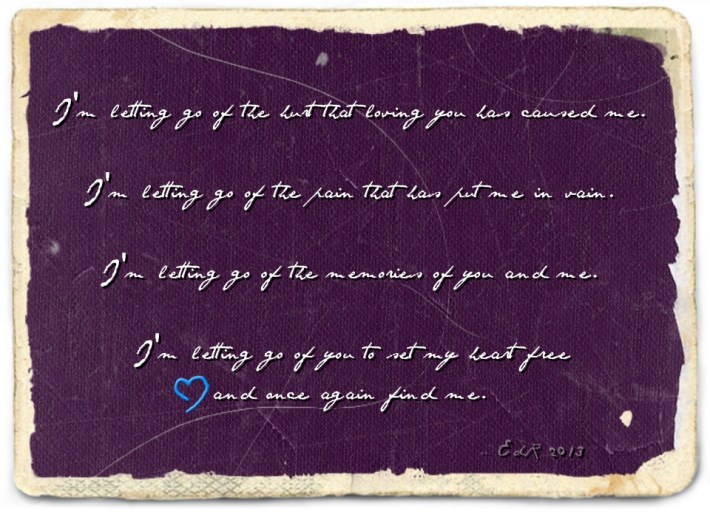 I'm letting go of the hurt that loving you has caused me.
I'm letting go of the pain that has put me in vain.
I'm letting go of the memories of you and me.
I'm letting go of you to set my heart free
and once again find me.
EdR 2013